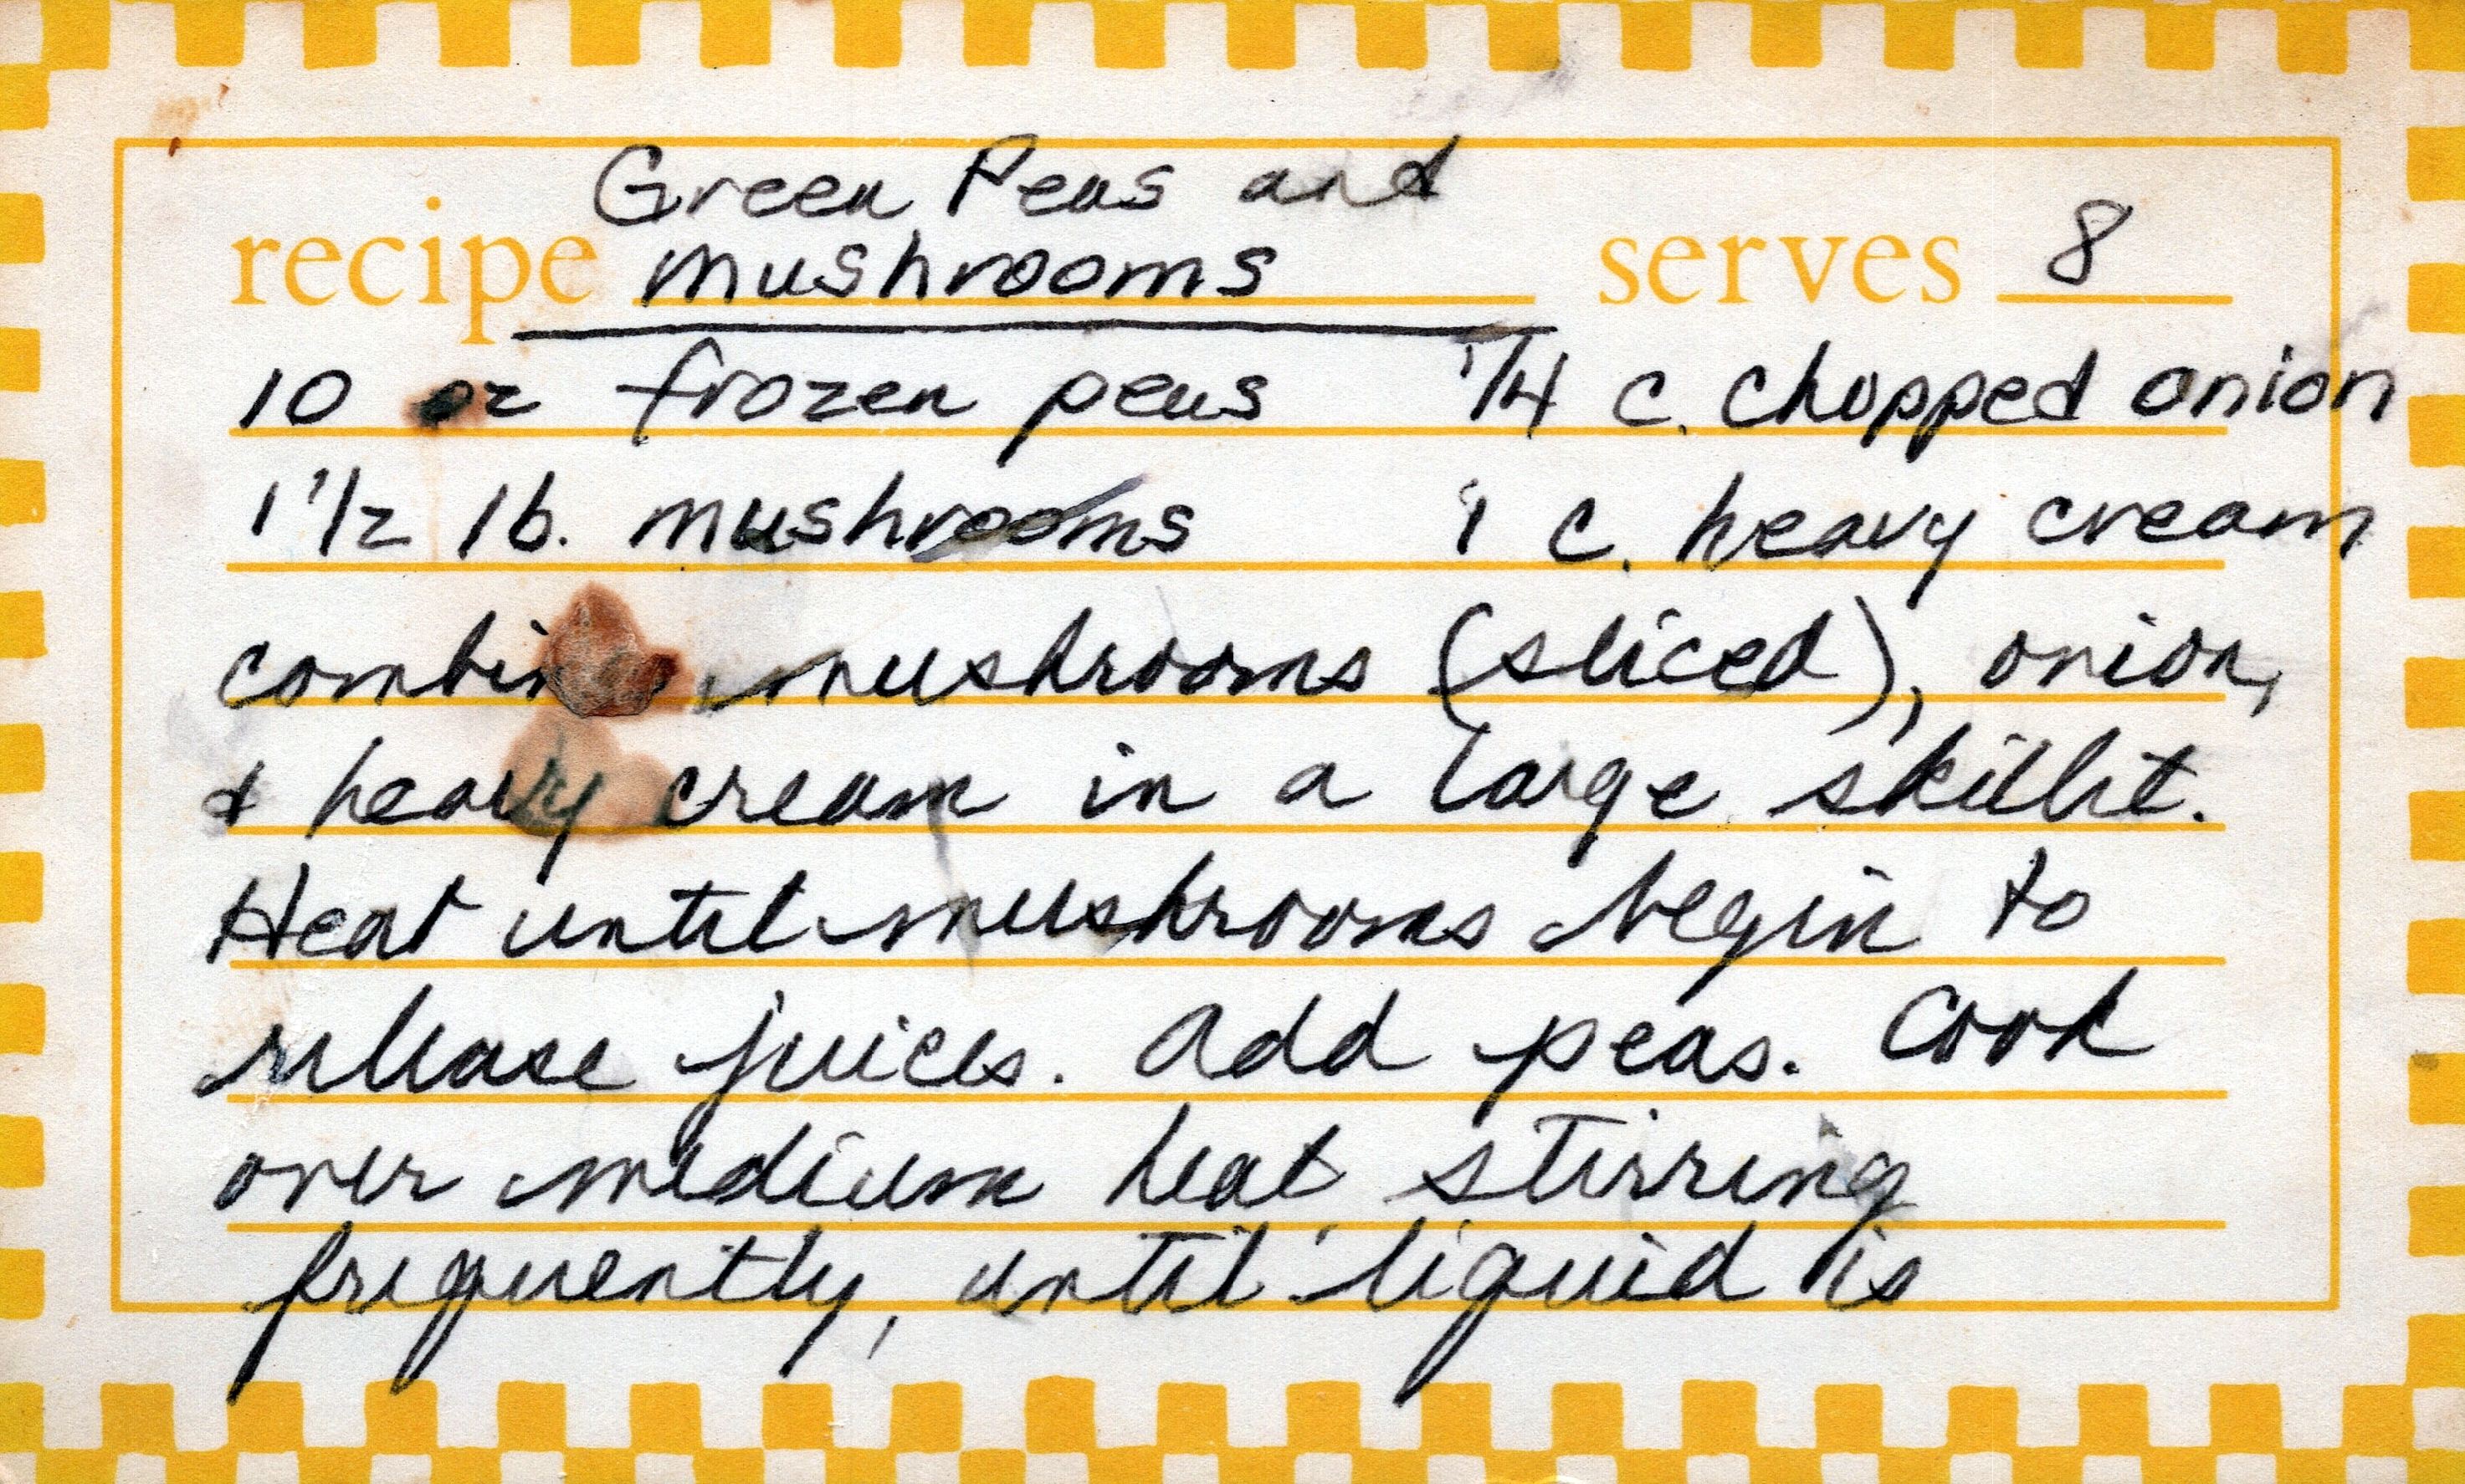 Green Peas and
recipe mushrooms serves 8
10 oz frozen peas 1/4 c. chopped onion
1 1/2 lb. mushrooms 1 c. heavy cream
combine mushrooms (sliced), onion,
& heavy cream in a large skillit.
Heat until mushrooms begin to
release juices. Add peas. Cook
over medium heat stirring
frequently, until liquid is